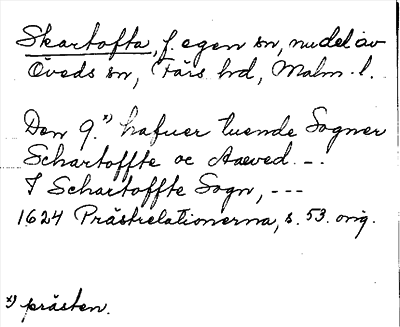 Skartofta, f. egen sn, nu del av
Öveds sn, Färs hd, Malm. l.
Den 9.ˣ⁾ hafuer tuende Sogner
Schartoffte oc Aaeved. –.
I Schartoffte Sogn, ---
1624 Prästrelationerna, s. 53. orig.
x) prästen.